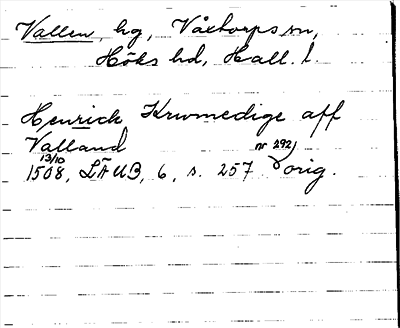 Vallen, hg, Våxtorps sn,
Höks hd, Hall. l.
Henrich Krwmedige aff
Valland nr 292)
13/10
1508, LÄUB, 6, s. 257 orig.